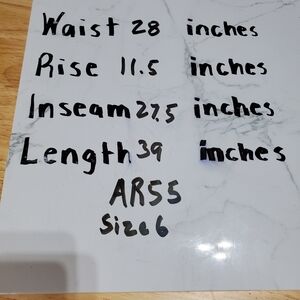 Waist 28 inches
Rise 11.5 inches
Inseam 27.5 inches
Length 39 inches
AR55
Size 6